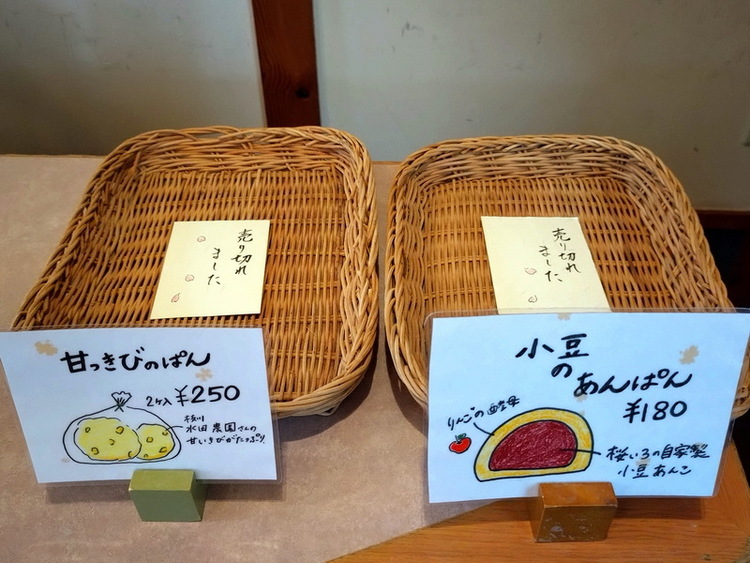 売り切れ
ました
売り切れ
ました
甘っきびのぱん
2ケ入 ¥250
水田 農園さんの
甘いきびがたっぷり!
小豆
の
あんぱん
¥180
りんごの酵母
桜いろの自家製
小豆あんこ